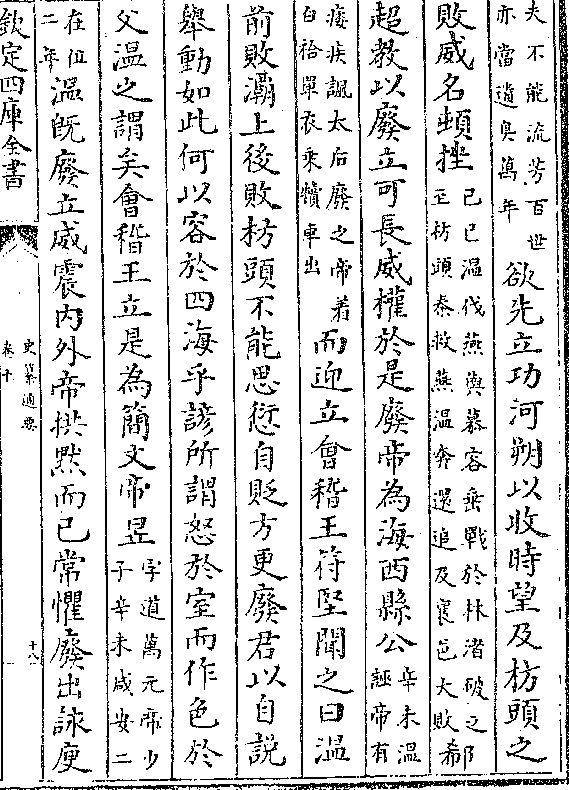 夫不能流芳百世
亦當遺臭萬年
欲先立功河朔以收時望及枋頭之
敗威名頓挫
己巳溫伐燕與慕容垂戰於林渚破之
至枋頭秦救燕溫奔還追及襄邑大敗
郗
超教以廢立可長威權於是廢帝為海西縣公
辛未溫
誣帝有
痿疾諷太后廢之帝着
白袷單衣乘犢車出
而迎立會稽王符堅聞之曰溫
前敗灞上後敗枋頭不能思愆自貶方更廢君以自說
舉動如此何以容於四海乎諺所謂怒於室而作色於
父溫之謂矣會稽王立是為簡文帝昱
字道萬元帝少
子辛未咸安二
在位
二年
溫既廢立威震內外帝拱默而已常懼廢出詠庾
欽定四庫全書
史纂通要
卷十
十八